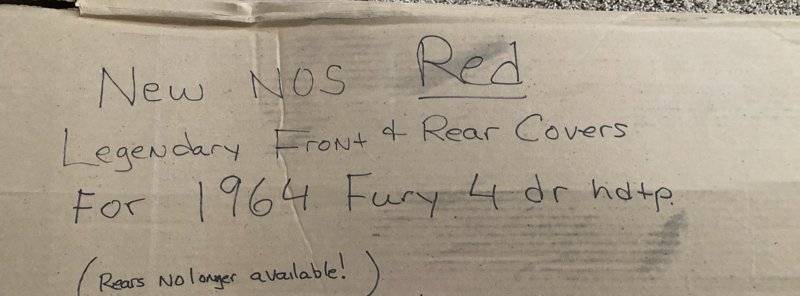 New NOS Red
Legendary Front & Rear Covers
For 1964 Fury 4 dr hdtp.
(Rears No longer available!)